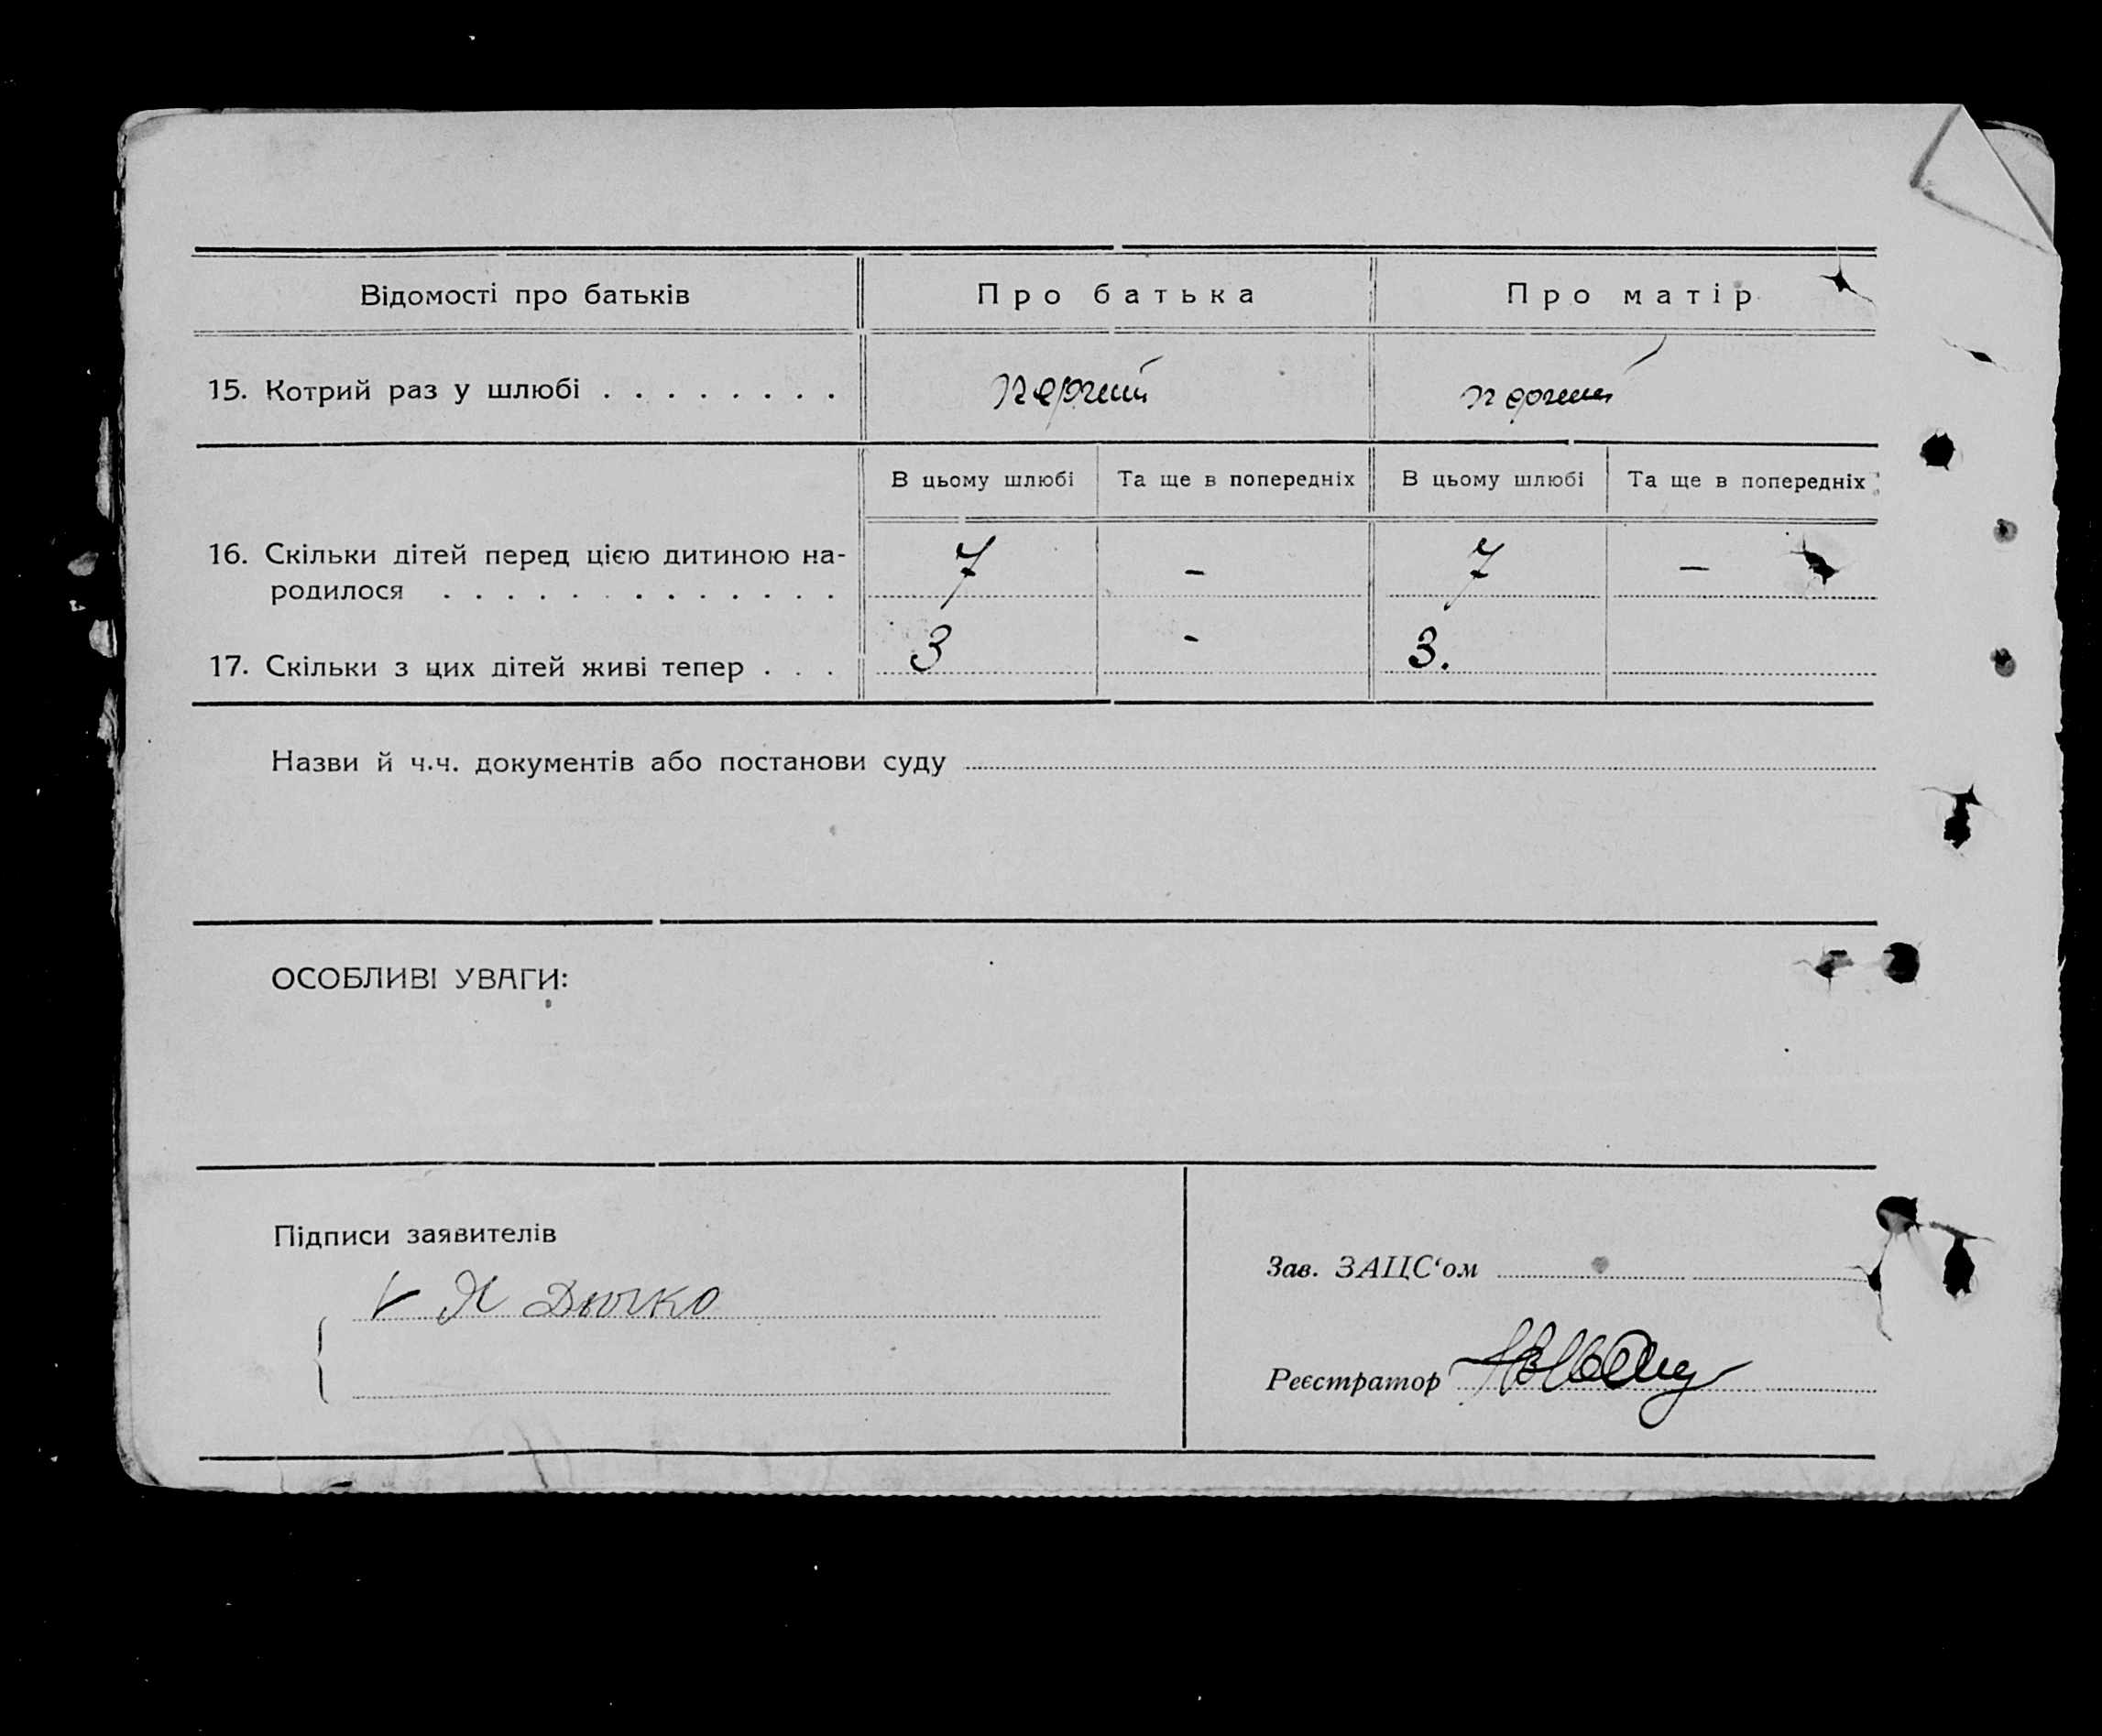 Відомості про батьків Про батька Про матір
15. Котрий раз у шлюбі . . . . . . . . перший перший
В цьому шлюбі Та ще в попередніх В цьому шлюбі Та ще в попередніх
16. Скільки дітей перед цією дитиною на-
родилося . . . . . . . . . . . . . . 7 - 7 -
17. Скільки з цих дітей живі тепер . . . 3 - 3.
Назви й ч.ч. документів або постанови суду
ОСОБЛИВІ УВАГИ:
Підписи заявителів
Зав. ЗАЦС‘ом
Реєстратор